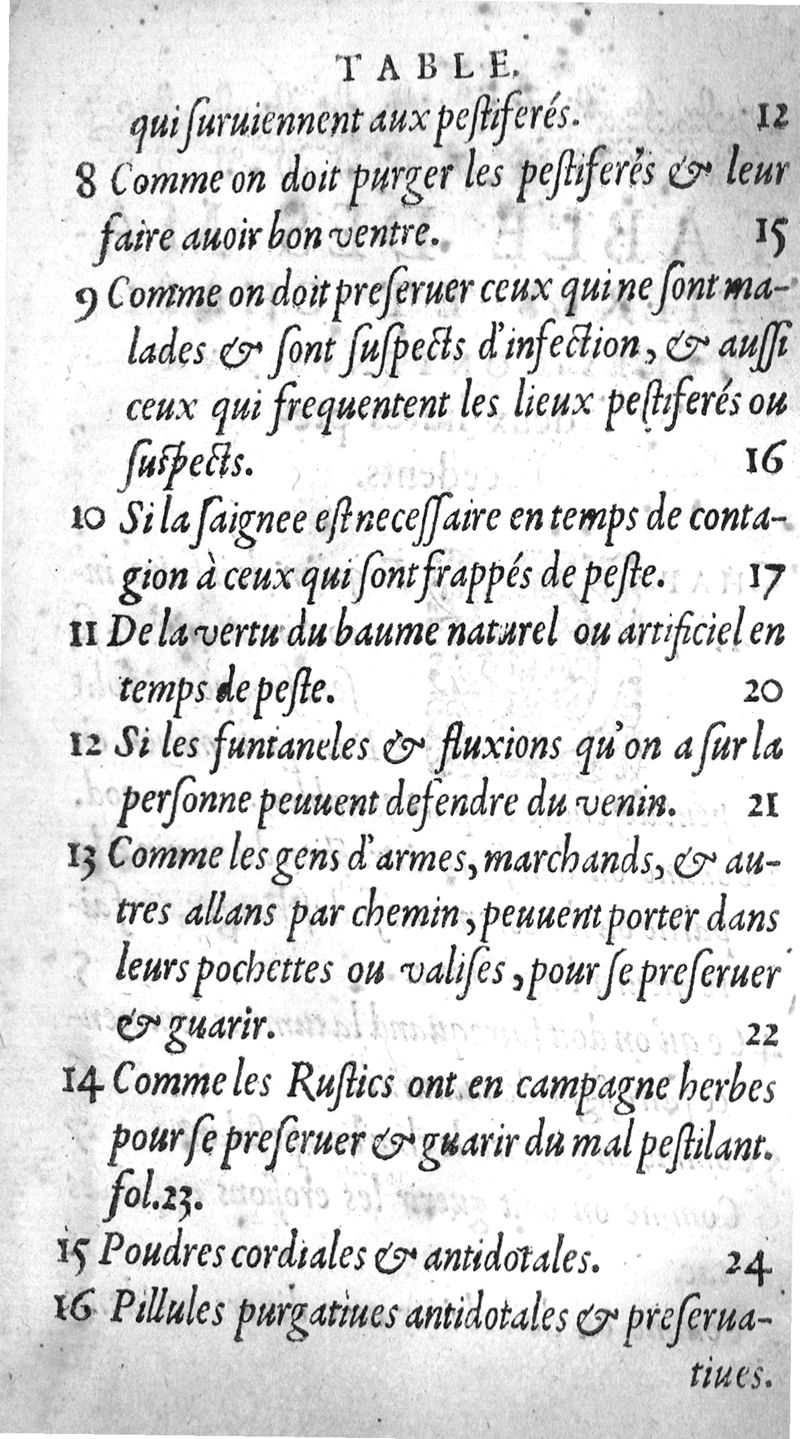 TABLE.
qui ſuruiennent aux peſtiferés. 12
8 Comme on doit purger les peſtiferés & leur
faire auoir bon ventre. 15
9 Comme on doit preſeruer ceux qui ne ſont ma-
lades & ſont ſuſpects d'infection, & auſſi
ceux qui frequentent les lieux peſtiferés ou
ſuſpects. 16
10 Si la ſaignee eſt neceſſaire en temps de conta-
gion à ceux qui ſont frappés de peſte. 17
11 De la vertu du baume naturel ou artificiel en
temps de peſte. 20
12 Si les funtaneles & fluxions qu'on a ſur la
perſonne peuuent defendre du venin. 21
13 Comme les gens d'armes, marchands, & au-
tres allans par chemin, peuuent porter dans
leurs pochettes ou valiſes, pour ſe preſeruer
& guarir. 22
14 Comme les Ruſtics ont en campagne herbes
pour ſe preſeruer & guarir du mal peſtilant.
fol.23.
15 Poudres cordiales & antidotales. 24
16 Pillules purgatiues antidotales & preſerua-
tiues.